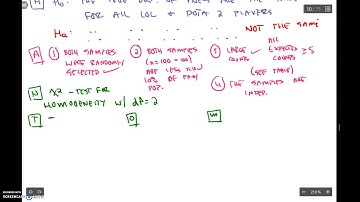 H₀: THE TRUE DIST. OF
FOR ALL LOL & DOTA 2 PLAYERS
Hₐ: " " " " " NOT THE SAME
A ① BOTH SAMPLES WERE RANDOMLY SELECTED ✓
② BOTH SAMPLES (n=100+100) ARE LESS THAN 10% OF EACH POP.
③ LARGE COUNTS ALL EXPECTED COUNTS ≥ 5 (SEE TABLE)
④ THE SAMPLES ARE INDEP.
N χ² - TEST FOR
HOMOGENEITY W/ df = 2
T - O M